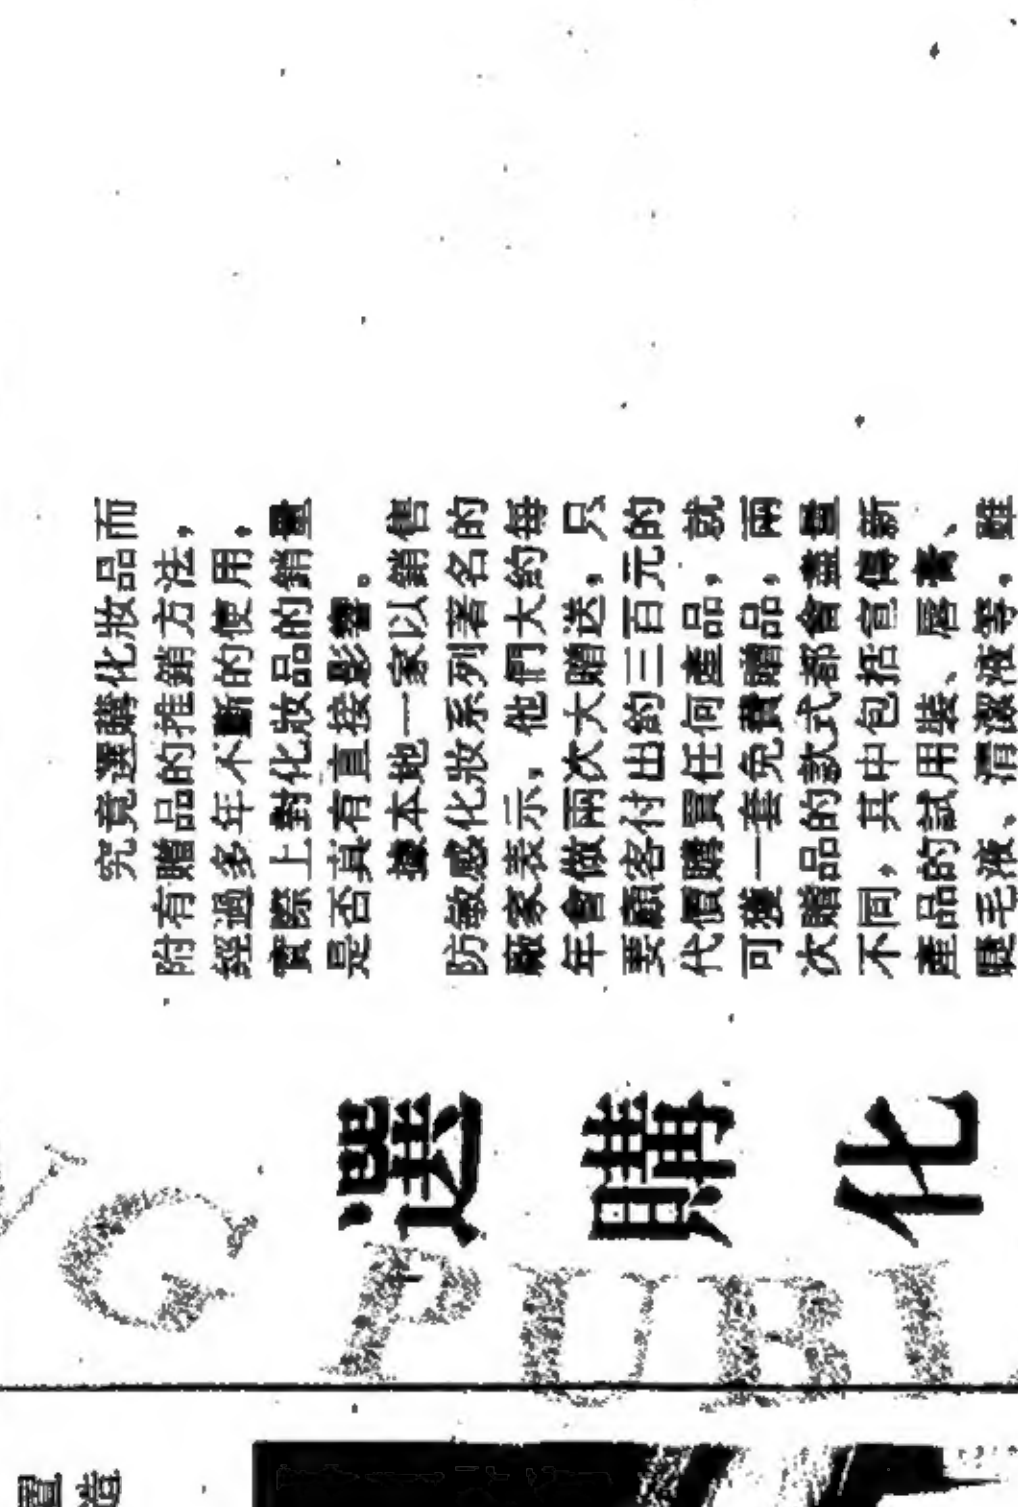 究竟選購化妝品而
附有贈品的推銷方法，
經過多年不斷的使用，
實際上對化妝品的銷量
是否真有直接影響。
據本地一家以銷售
防敏感化妝系列著名的
廠家表示，他們大約每
年會做兩次大贈送，只
要顧客付出約三百元的
代價購買任何產品，就
可獲一套免費贈品，兩
次贈品的款式都會盡量
不同，其中包括宣傳新
產品的試用裝、唇膏、
睫毛液、清潔液等，雖
選購化
G PUBL